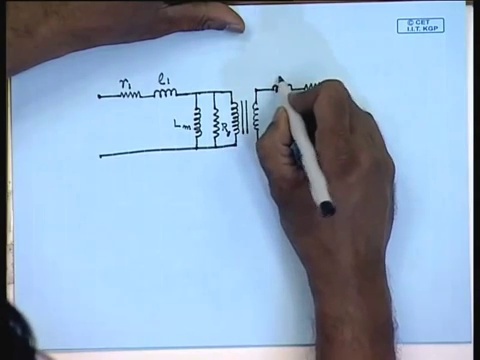 © CET
I.I.T. KGP
r₁ l₁
Lm